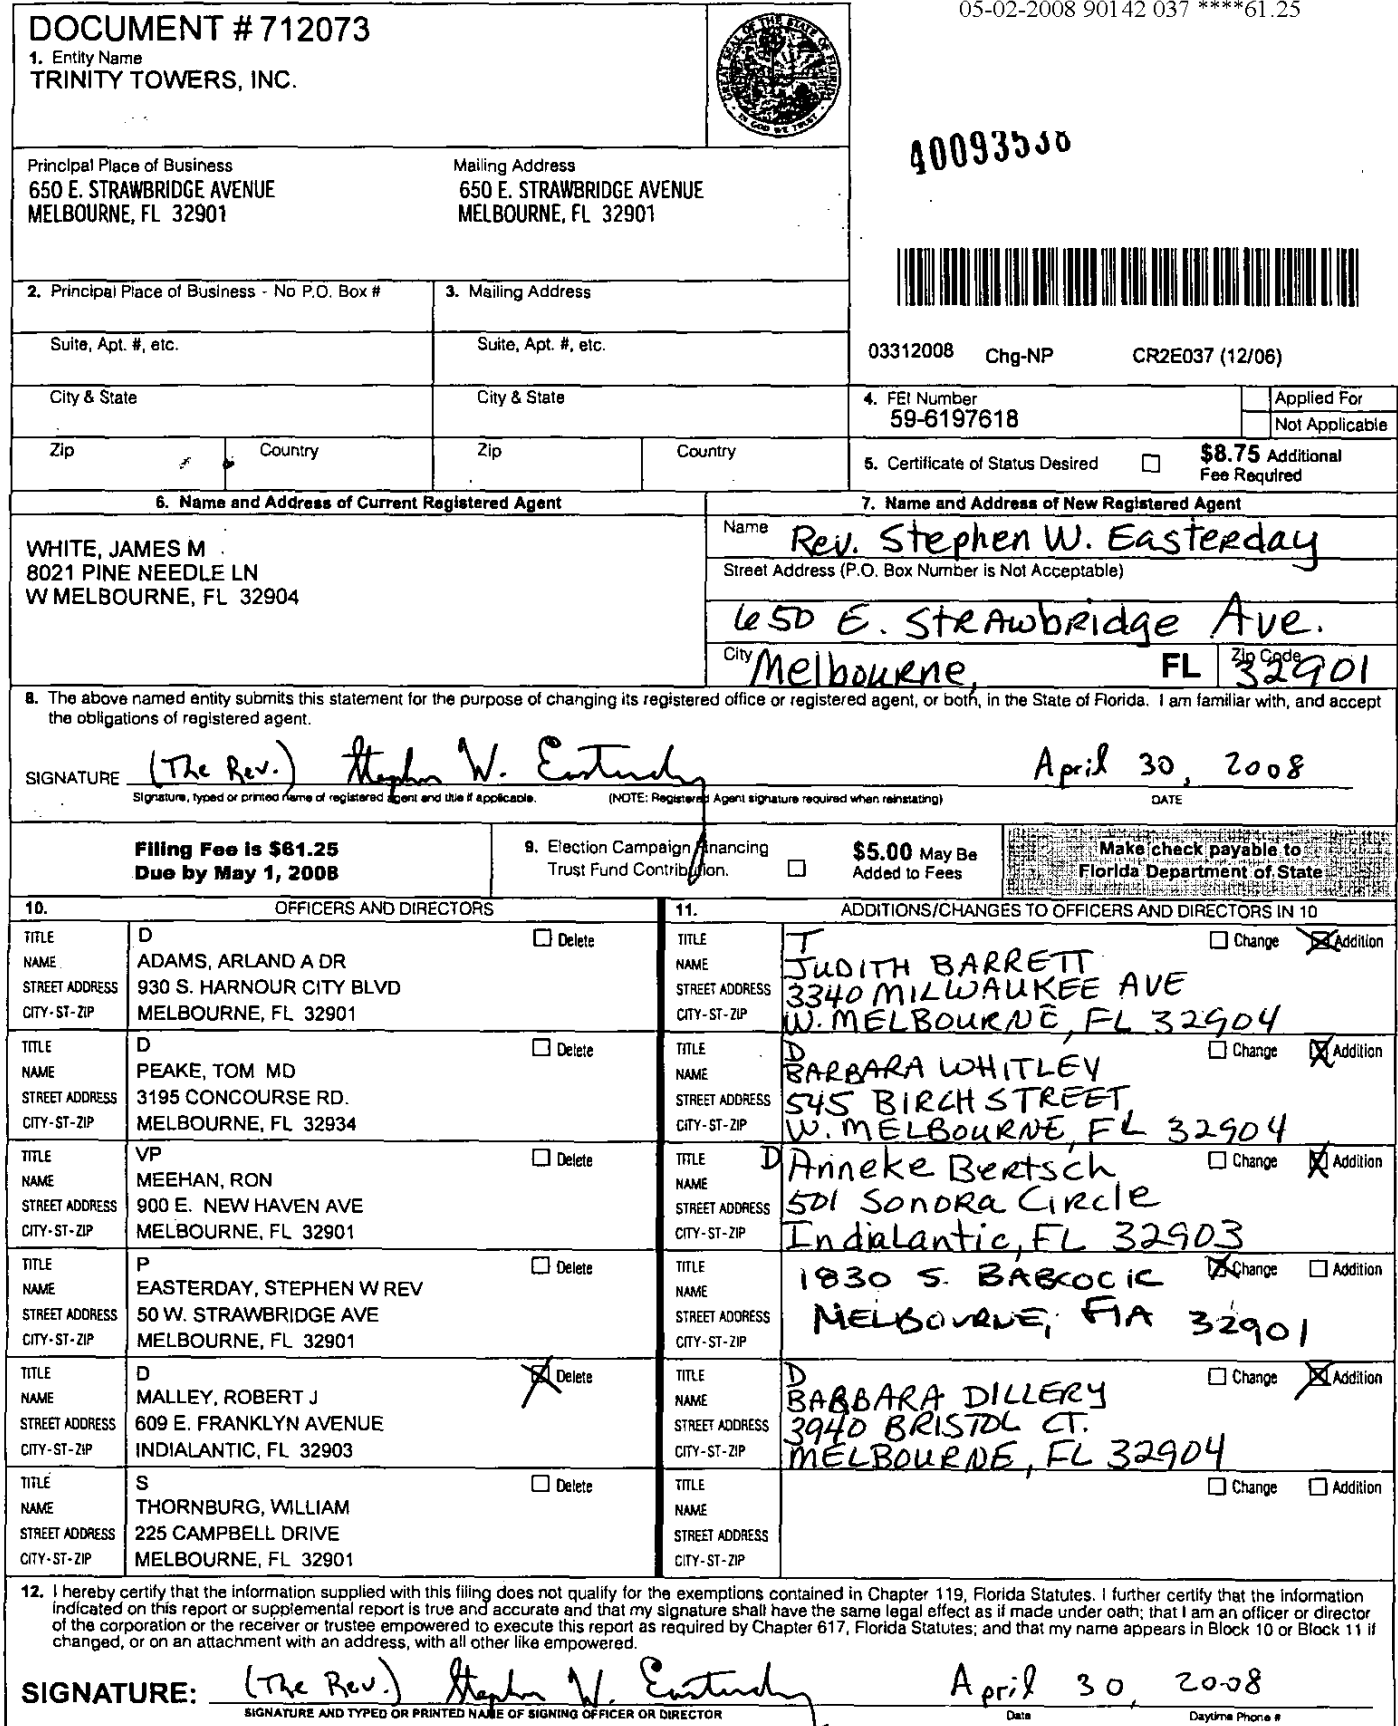 05-02-2008 90142 037 ****61.25
DOCUMENT # 712073
1. Entity Name
TRINITY TOWERS, INC.
Principal Place of Business
650 E. STRAWBRIDGE AVENUE
MELBOURNE, FL 32901
Mailing Address
650 E. STRAWBRIDGE AVENUE
MELBOURNE, FL 32901
2. Principal Place of Business - No P.O. Box #
3. Mailing Address
Suite, Apt. #, etc.
Suite, Apt. #, etc.
City & State
City & State
Zip Country
Zip Country
03312008 Chg-NP CR2E037 (12/06)
4. FEI Number
59-6197618
Applied For
Not Applicable
5. Certificate of Status Desired
$8.75 Additional
Fee Required
6. Name and Address of Current Registered Agent
WHITE, JAMES M
8021 PINE NEEDLE LN
W MELBOURNE, FL 32904
7. Name and Address of New Registered Agent
Name Rev. Stephen W. Easterday
Street Address (P.O. Box Number is Not Acceptable)
650 E. Strawbridge Ave.
City Melbourne, FL Zip Code 32901
8. The above named entity submits this statement for the purpose of changing its registered office or registered agent, or both, in the State of Florida. I am familiar with, and accept
the obligations of registered agent.
SIGNATURE (The Rev.) Stephen W. Easterday April 30, 2008
Signature, typed or printed name of registered agent and title if applicable. (NOTE: Registered Agent signature required when reinstating) DATE
Filing Fee is $61.25
Due by May 1, 2008
9. Election Campaign Financing
Trust Fund Contribution.
$5.00 May Be
Added to Fees
Make check payable to
Florida Department of State
10. OFFICERS AND DIRECTORS
TITLE D Delete
NAME ADAMS, ARLAND A DR
STREET ADDRESS 930 S. HARNOUR CITY BLVD
CITY-ST-ZIP MELBOURNE, FL 32901
TITLE D Delete
NAME PEAKE, TOM MD
STREET ADDRESS 3195 CONCOURSE RD.
CITY-ST-ZIP MELBOURNE, FL 32934
TITLE VP Delete
NAME MEEHAN, RON
STREET ADDRESS 900 E. NEW HAVEN AVE
CITY-ST-ZIP MELBOURNE, FL 32901
TITLE P Delete
NAME EASTERDAY, STEPHEN W REV
STREET ADDRESS 50 W. STRAWBRIDGE AVE
CITY-ST-ZIP MELBOURNE, FL 32901
TITLE D Delete
NAME MALLEY, ROBERT J
STREET ADDRESS 609 E. FRANKLYN AVENUE
CITY-ST-ZIP INDIALANTIC, FL 32903
TITLE S Delete
NAME THORNBURG, WILLIAM
STREET ADDRESS 225 CAMPBELL DRIVE
CITY-ST-ZIP MELBOURNE, FL 32901
11. ADDITIONS/CHANGES TO OFFICERS AND DIRECTORS IN 10
TITLE T Change Addition
NAME JUDITH BARRETT
STREET ADDRESS 3340 MILWAUKEE AVE
CITY-ST-ZIP W. MELBOURNE, FL 32904
TITLE D Change Addition
NAME BARBARA WHITLEY
STREET ADDRESS 545 BIRCH STREET,
CITY-ST-ZIP W. MELBOURNE, FL 32904
TITLE D Anneke Bertsch Change Addition
NAME
STREET ADDRESS 501 Sonora Circle
CITY-ST-ZIP Indialantic, FL 32903
TITLE 1830 S. BABCOCK Change Addition
NAME
STREET ADDRESS MELBOURNE, FlA 32901
CITY-ST-ZIP
TITLE D Change Addition
NAME BARBARA DILLERY
STREET ADDRESS 3940 BRISTOL CT.
CITY-ST-ZIP MELBOURNE, FL 32904
TITLE Change Addition
NAME
STREET ADDRESS
CITY-ST-ZIP
12. I hereby certify that the information supplied with this filing does not qualify for the exemptions contained in Chapter 119, Florida Statutes. I further certify that the information
indicated on this report or supplemental report is true and accurate and that my signature shall have the same legal effect as if made under oath; that I am an officer or director
of the corporation or the receiver or trustee empowered to execute this report as required by Chapter 617, Florida Statutes; and that my name appears in Block 10 or Block 11 if
changed, or on an attachment with an address, with all other like empowered.
SIGNATURE: (The Rev.) Stephen W. Easterday April 30, 2008
SIGNATURE AND TYPED OR PRINTED NAME OF SIGNING OFFICER OR DIRECTOR Date Daytime Phone #